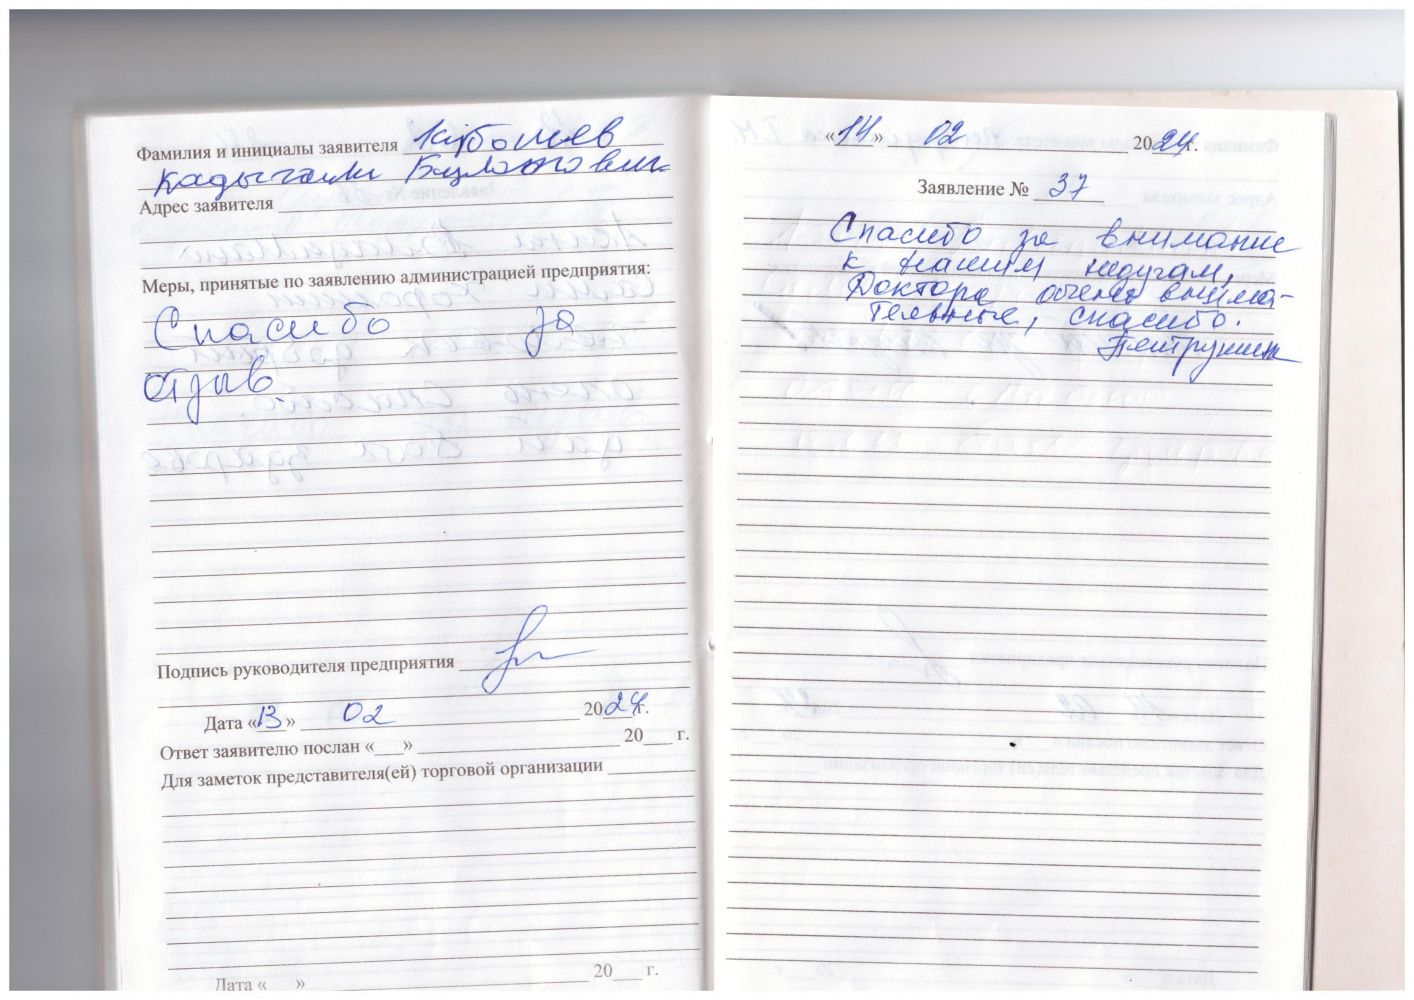 Фамилия и инициалы заявителя
Адрес заявителя
Меры, принятые по заявлению администрацией предприятия:
Спасибо за
отзыв
Подпись руководителя предприятия
Дата «13» 02 2024 г.
Ответ заявителю послан «    » 20    г.
Для заметок представителя(ей) торговой организации
Дата «    » 20    г.
«14» 02 2024 г.
Заявление № 37
Спасибо за внимание
к нашим недугам,
Доктора очень внима-
тельные, спасибо.